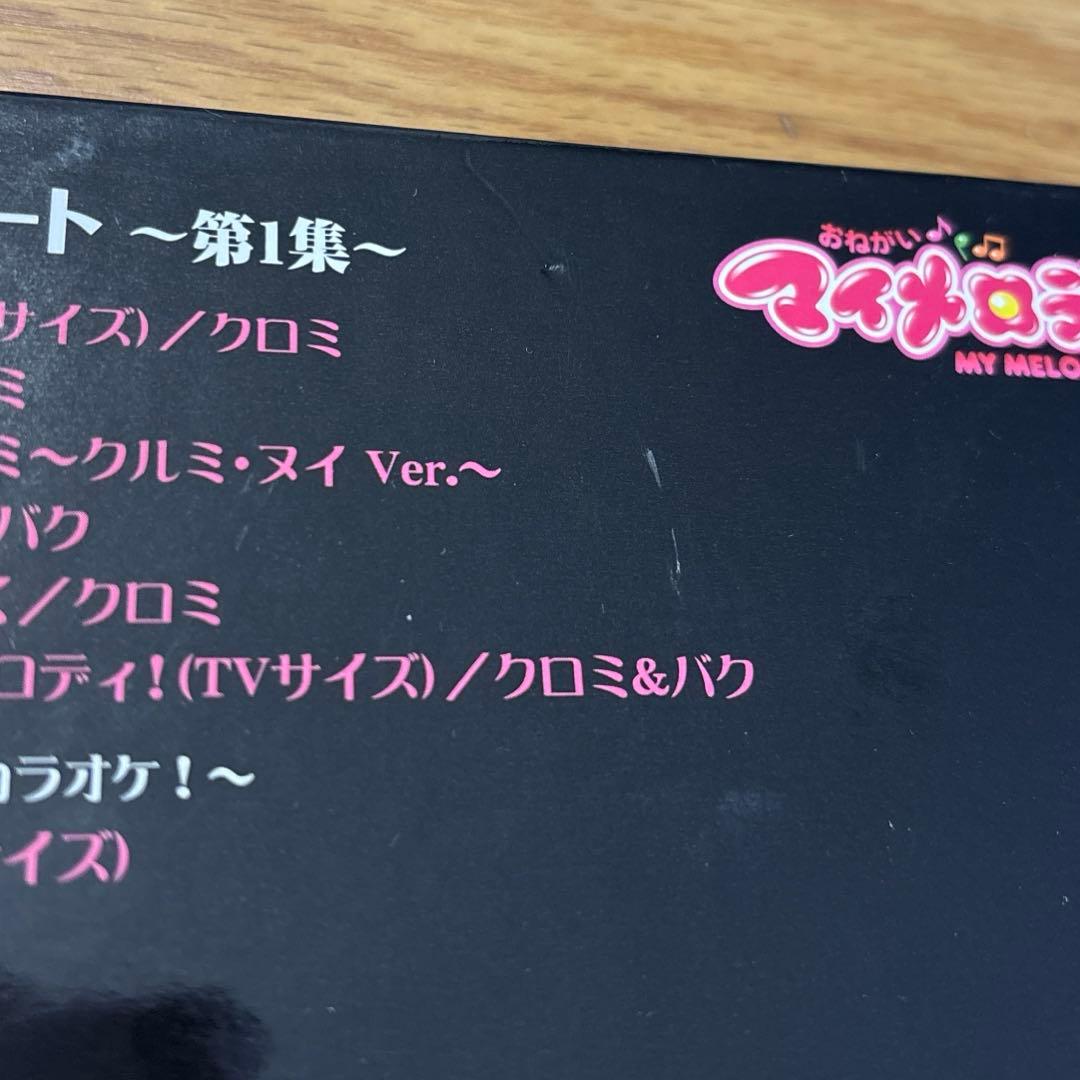 ート ～第1集～
おねがい
マイメロ
MY MELO
サイズ)／クロミ
ミ
ミ～クルミ・ヌイ Ver.～
バク
／クロミ
ロディ!(TVサイズ)／クロミ&バク
カラオケ!～
イズ)